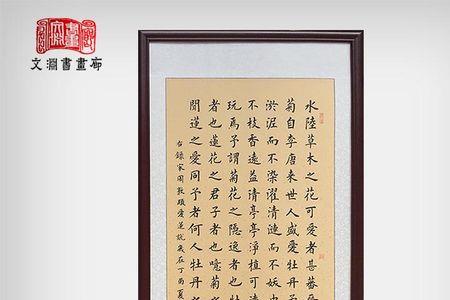 文淵書畫廊
水陸草木之花可愛者甚蕃
菊自李唐來世人盛愛牡丹
淤泥而不染濯清漣而不妖中
不枝香遠益清亭亭淨植可遠
玩焉予謂菊花之隱逸者也牡
者也蓮花之君子者也噫菊之
聞蓮之愛同予者何人牡丹之
右錄宋周敦頤愛蓮說歲在丁酉夏